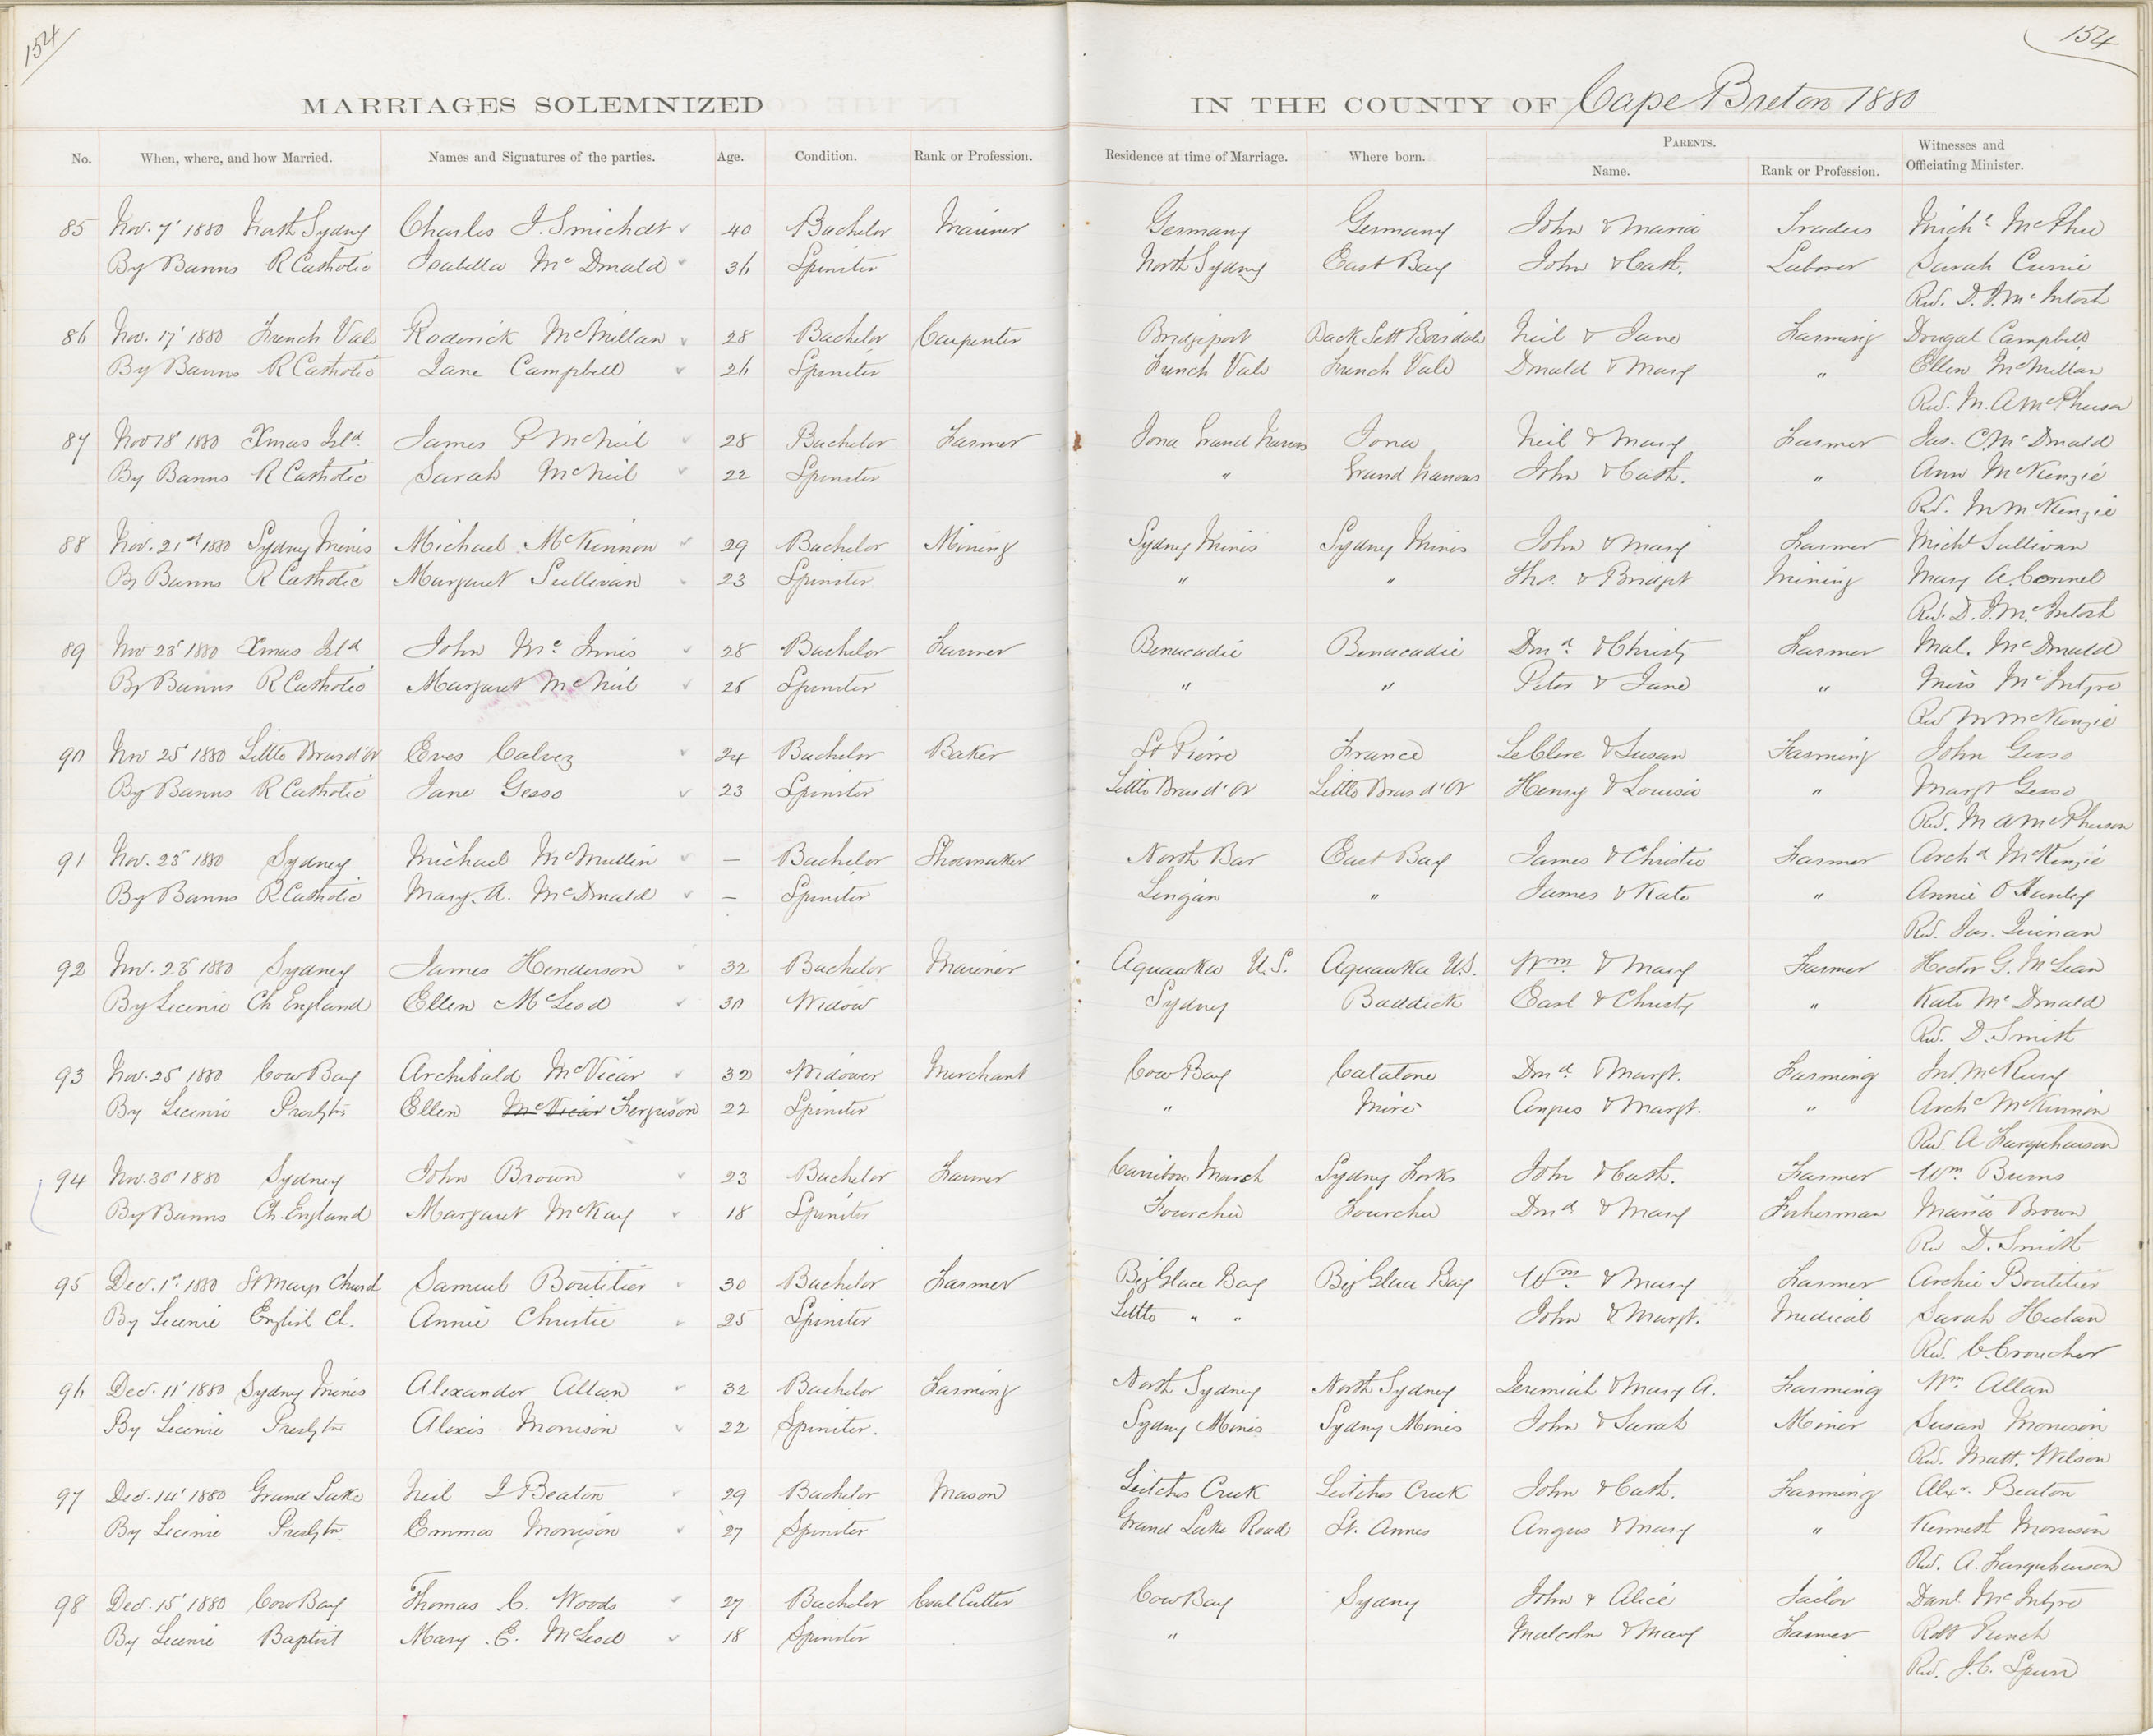 154
154
MARRIAGES SOLEMNIZED IN THE COUNTY OF Cape Breton 1880
No. When, where, and how Married. Names and Signatures of the parties. Age. Condition. Rank or Profession. Residence at time of Marriage. Where born. PARENTS. Name. Rank or Profession. Witnesses and Officiating Minister.
85 Nov. 7' 1880 North Sydney Charles J. Smichdt 40 Bachelor Mariner Germany Germany John & Maria Traders Michl McPhee
By Banns R Catholic Isabella Mc Donald 36 Spinster North Sydney East Bay John & Cath. Laborer Sarah Currie
Rev. D. J. McIntosh
86 Nov. 17' 1880 French Vale Roderick McMillan 28 Bachelor Carpenter Bridgeport Back Sett Boisdale Neil & Jane Farming Dougal Campbell
By Banns R Catholic Jane Campbell 26 Spinster French Vale French Vale Donald & Mary " Ellen McMillan
Rev. M. A McPherson
87 Nov 18' 1880 Xmas Isld. James P McNeil 28 Bachelor Farmer Iona Grand Narrows Iona Neil & Mary Farmer Jas. C. McDonald
By Banns R Catholic Sarah McNeil 22 Spinster " Grand Narrows John & Cath. " Ann McKenzie
Rev. M McKenzie
88 Nov. 21st 1880 Sydney Mines Michael McKinnon 29 Bachelor Mining Sydney Mines Sydney Mines John & Mary Farmer Michl Sullivan
By Banns R Catholic Margaret Sullivan 23 Spinster " " Thos. & Bridget Mining Mary A. Connel
Rev. D. J. McIntosh
89 Nov 23' 1880 Xmas Isld John Mc Innis 28 Bachelor Farmer Benacadie Benacadie Dond. & Christy Farmer Mal. McDonald
By Banns R Catholic Margaret McNeil 25 Spinster " " Peter & Jane " Miss McIntyre
Rev M McKenzie
90 Nov 25' 1880 Little Bras d'Or Eves Calvez 24 Bachelor Baker St Pierre France LeClere & Susan Farming John Gesso
By Banns R Catholic Jane Gesso 23 Spinster Little Bras d'Or Little Bras d'Or Henry & Louisa " Margt Gesso
Rev. M A McPherson
91 Nov. 23' 1880 Sydney Michael McMullin — Bachelor Shoemaker North Bar East Bay James & Christie Farmer Archd McKenzie
By Banns R Catholic Mary. A. McDonald — Spinster Lingan " James & Kate " Annie O'Hanley
Rev. Jas. Quinan
92 Nov. 23' 1880 Sydney James Henderson 32 Bachelor Mariner Aquawka U.S. Aquawka U.S. Wm. & Mary Farmer Hector G. McLean
By Licence Ch England Ellen McLeod 30 Widow Sydney Baddeck Earl & Christy " Kate McDonald
Rev. D. Smith
93 Nov. 25' 1880 Cow Bay Archibald McVicar 32 Widower Merchant Cow Bay Catalone Dond. & Margt. Farming
By Licence Presbytn Ellen McVicar Ferguson 22 Spinster " Mire Angus & Margt. " Archd McKinnon
Rev. A Farquharson
94 Nov. 30' 1880 Sydney John Brown 23 Bachelor Farmer Carribou Marsh Sydney Forks John & Cath. Farmer Wm. Burns
By Banns Ch. England Margaret McKay 18 Spinster Fourchu Fourchu Dond & Mary Fisherman Maria Brown
Rev D. Smith
95 Dec. 1st. 1880 St Marys Church Samuel Boutilier 30 Bachelor Farmer Big Glace Bay Big Glace Bay Wm. & Mary Farmer Archie Boutilier
By Licence English Ch. Annie Christie 25 Spinster Little " " John & Margt. Medical Sarah
Rev. C. Croucher
96 Dec. 11' 1880 Sydney Mines Alexander Allan 32 Bachelor Farming North Sydney North Sydney Jeremiah & Mary A. Farming Wm. Allan
By Licence Presbytn Alexis Morrison 22 Spinster. Sydney Mines Sydney Mines John & Sarah Miner Susan Morrison
Rev. Matt. Wilson
97 Dec. 14' 1880 Grand Lake Neil J Beaton 29 Bachelor Mason Leitches Creek Leitches Creek John & Cath. Farming Alexr. Beaton
By Licence Presbytn. Emma Morrison 27 Spinster Grand Lake Road St. Annes Angus & Mary " Kenneth Morrison
Rev. A. Farquharson
98 Dec. 15' 1880 Cow Bay Thomas C. Woods 27 Bachelor Coal Cutter Cow Bay Sydney John & Alice Tailor Danl. McIntyre
By Licence Baptist Mary E. McLeod 18 Spinster " Malcolm & Mary Farmer Robt Punch
Rev. J. C. Spurr